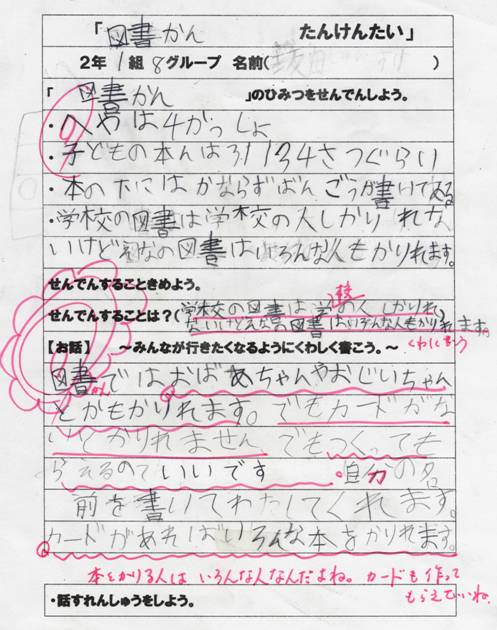 「図書かん たんけんたい」
2年1組8グループ 名前( )
「 図書かん 」のひみつをせんでんしよう。
・へやは4がっしょ
・子どもの本んは31134さつぐらい
・本の下にはかならずばんごうが書いてある
・学校の図書は学校の人しかりれな
いけど の図書はいろんな人もかりれます。
せんでんすることきめよう。
せんでんすることは?(学校の図書は学校の人しかりれ
ないけど の図書はいろんな人もかりれます。)
くわしく書こう
【お話】 ~みんなが行きたくなるようにくわしく書こう。~
図書かんではおばあちゃんやおじいちゃん
とかもかりれます。でもカードがな
いとかりれません でもつくっても
らえるのでいいです。自分の名
前を書いてわたしてくれます。
カードがあればいろんな本をかりれます。
本をかりる人は いろんな人なんだよね。カードも作って
もらえていいね。
・話すれんしゅうをしよう。